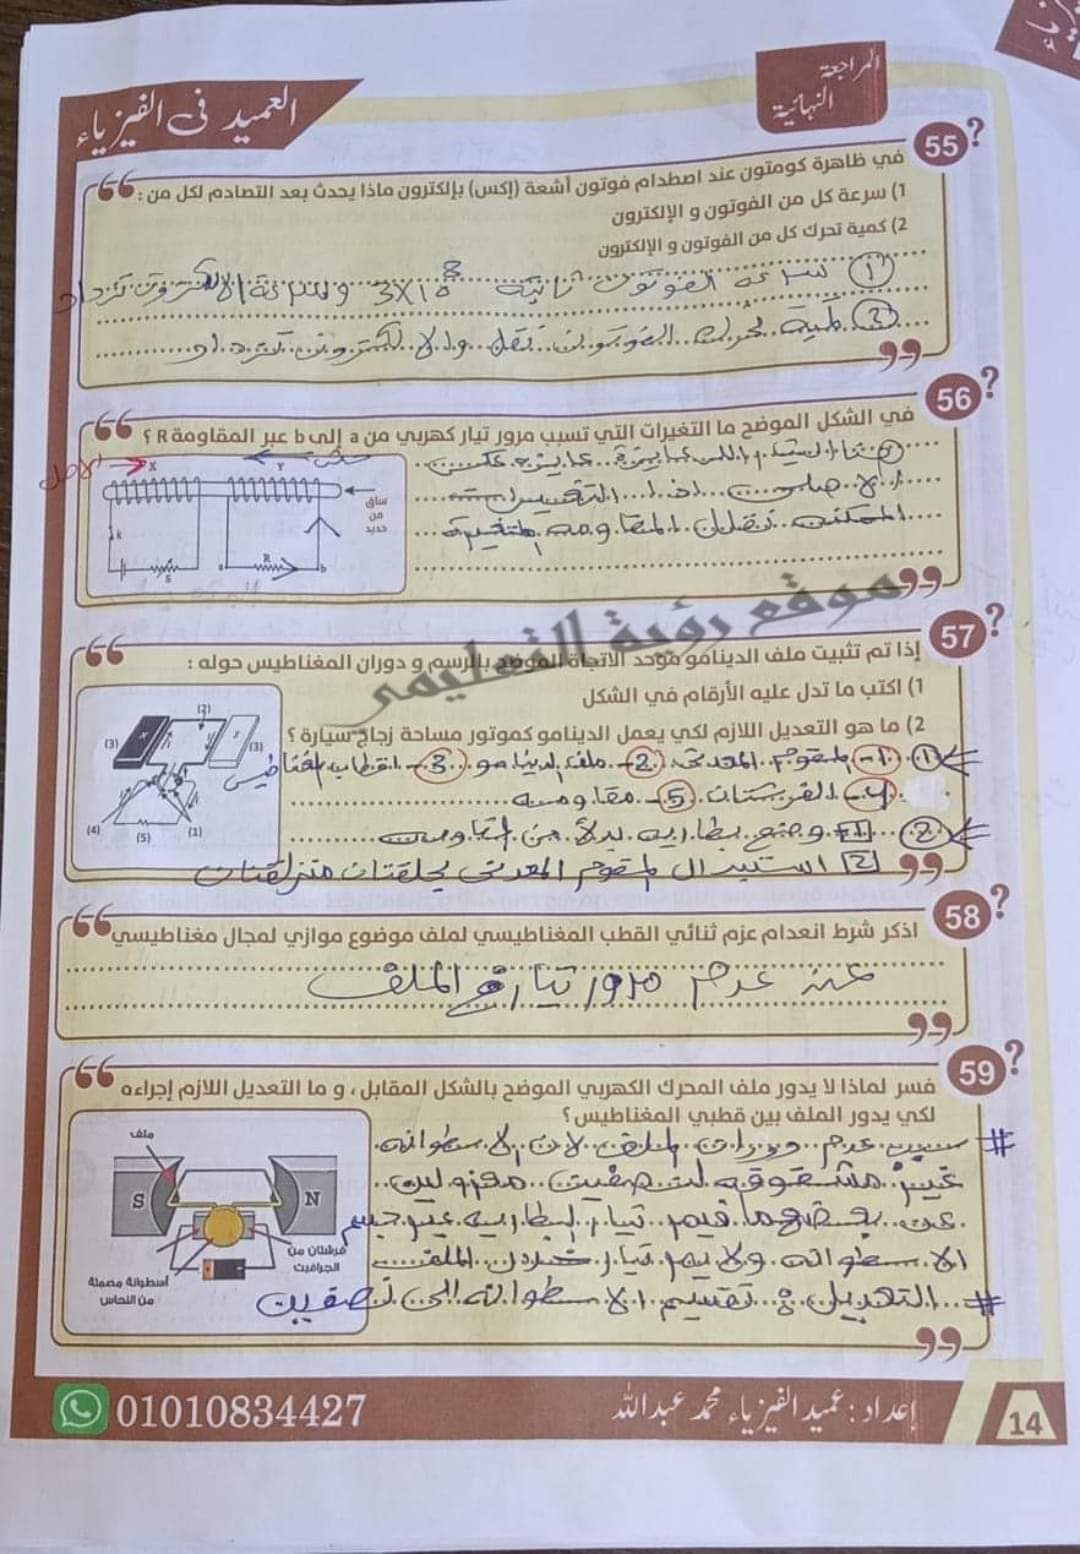 المراجعة
النهائية
العميد فى الفيزياء
55
في ظاهرة كومتون عند اصطدام فوتون أشعة (إكس) بإلكترون ماذا يحدث بعد التصادم لكل من :
1) سرعة كل من الفوتون و الإلكترون
2) كمية تحرك كل من الفوتون و الإلكترون
① سرعة الفوتون ثابتة 3x10⁸ وسرعة الالكترون تزداد
② كمية تحرك الفوتون تقل والالكترون تزداد
56
في الشكل الموضح ما التغيرات التي تسبب مرور تيار كهربي من a إلى b عبر المقاومة R ؟
الاصل
X
Y
ساق
من
حديد
k
S
a
R
b
موقع رؤية التعليمى
57
إذا تم تثبيت ملف الدينامو موحد الاتجاة الموضح بالرسم و دوران المغناطيس حوله :
1) اكتب ما تدل عليه الأرقام في الشكل
2) ما هو التعديل اللازم لكي يعمل الدينامو كموتور مساحة زجاج سيارة ؟
① 1- المقوم المعدنى 2- ملف الدينامو 3- اقطاب المغناطيس
4- الفرشتان 5- مقاومة
② 1 وضع بطاريه بدلاً من المقاومة
2 استبدال المقوم المعدنى بحلقتان منزلقتان
(2)
(3)
(3)
(4)
(5)
(1)
58
اذكر شرط انعدام عزم ثنائي القطب المغناطيسي لملف موضوع موازي لمجال مغناطيسي
عند عدم مرور تيار في الملف
59
فسر لماذا لا يدور ملف المحرك الكهربي الموضح بالشكل المقابل ، و ما التعديل اللازم إجراءه
لكي يدور الملف بين قطبي المغناطيس؟
# سبب عدم دوران الملف لان الاسطوانه
غير مشقوقه لنصفين معزولين
عن بعضهما فيمر تيار البطاريه عبر جسم
الاسطوانه ولا يمر تيار خلال الملف
# التعديل : تقسيم الاسطوانه الى نصفين
ملف
S
N
فرشتان من
الجرافيت
أسطوانة مصمتة
من النحاس
01010834427
إعداد : عميد الفيزياء محمد عبدالله
14